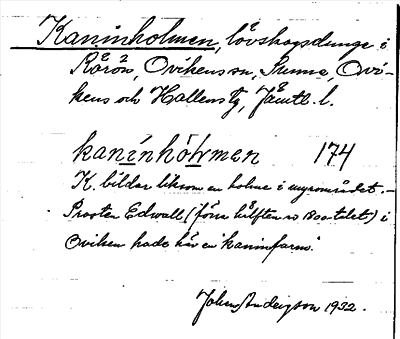 Kaninholmen, lövskogsdunge i
Rårön, Ovikens sn, Sunne, Ovi-
kens och Hallens tg, Jämtl. l.
kanínhöḷmen 174
K. bildar liksom en holme i myrområdet. –
Prosten Edwall (förra hälften av 1800-talet) i
Oviken hade här en "kaninfarm".
Johan Andersson 1932.